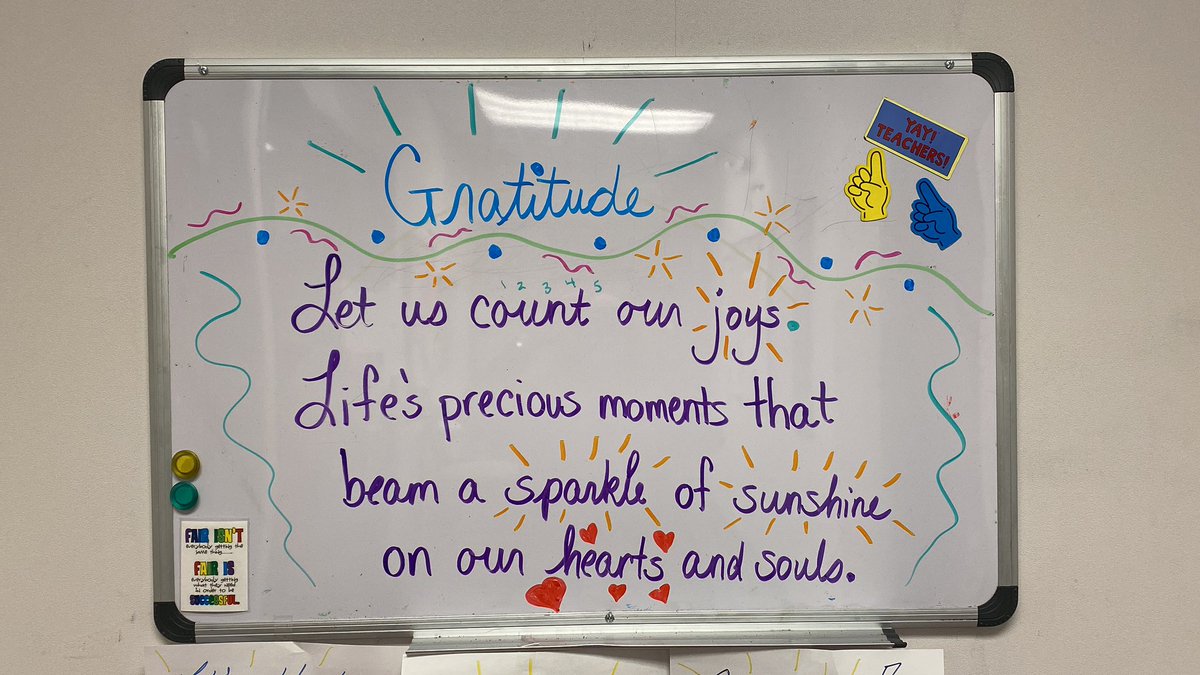 Gratitude
YAY!
TEACHERS!
1 2 3 4 5
Let us count our joys.
Life's precious moments that
beam a sparkle of sunshine
on our hearts and souls.
FAIR ISN'T
everybody getting the
same thing.....
FAIR IS
everybody getting
what they need
in order to be
SUCCESSFUL.